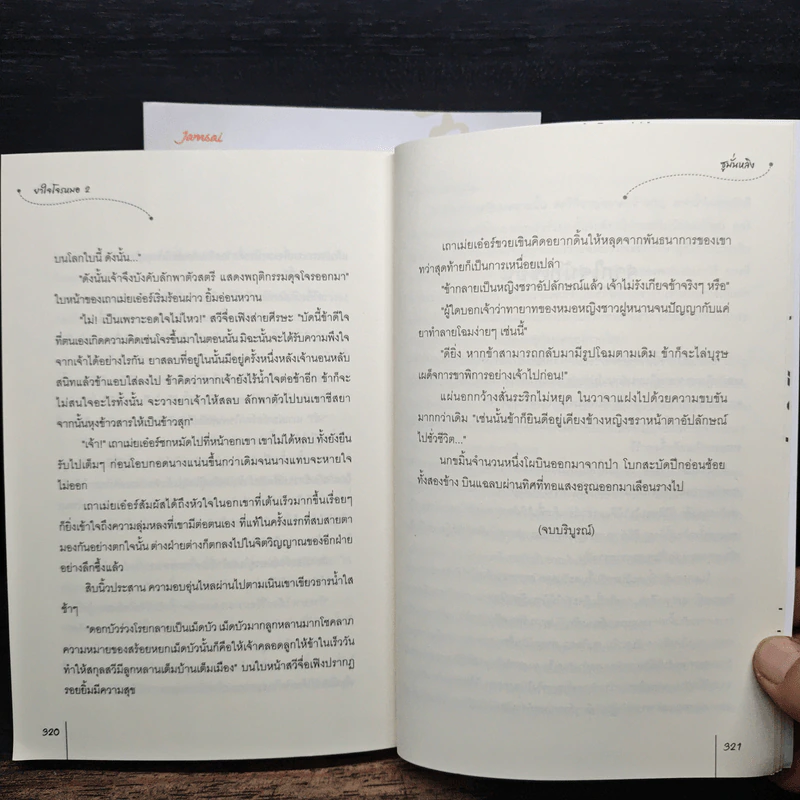 Jamsai
ยาใจโจรหมอ 2
บนโลกใบนี้ ดังนั้น..."
"ดังนั้นเจ้าจึงบังคับลักพาตัวสตรี แสดงพฤติกรรมดุจโจรออกมา"
ใบหน้าของเถาเม่ยเอ๋อร์เริ่มร้อนผ่าว ยิ้มอ่อนหวาน
"ไม่! เป็นเพราะอดใจไม่ไหว!" สวีจื่อเฟิงส่ายศีรษะ "บัดนี้ข้าดีใจ
ที่ตนเองเกิดความคิดเช่นโจรขึ้นมาในตอนนั้น มิฉะนั้นจะได้รับความพึงใจ
จากเจ้าได้อย่างไรกัน ยาสลบที่อยู่ในนั้นมีอยู่ครั้งหนึ่งหลังเจ้านอนหลับ
สนิทแล้วข้าแอบใส่ลงไป ข้าคิดว่าหากเจ้ายังไร้น้ำใจต่อข้าอีก ข้าก็จะ
ไม่สนใจอะไรทั้งนั้น จะวางยาเจ้าให้สลบ ลักพาตัวไปบนเขาชีสยา
จากนั้นหุงข้าวสารให้เป็นข้าวสุก"
"เจ้า!" เถาเม่ยเอ๋อร์ชกหมัดไปที่หน้าอกเขา เขาไม่ได้หลบ ทั้งยังยืน
รับไปเต็มๆ ก่อนโอบกอดนางแน่นขึ้นกว่าเดิมจนนางแทบจะหายใจ
ไม่ออก
เถาเม่ยเอ๋อร์สัมผัสได้ถึงหัวใจในอกเขาที่เต้นเร็วมากขึ้นเรื่อยๆ
ก็ยิ่งเข้าใจถึงความลุ่มหลงที่เขามีต่อตนเอง ที่แท้ในครั้งแรกที่สบสายตา
มองกันอย่างตกใจนั้น ต่างฝ่ายต่างก็ตกลงไปในจิตวิญญาณของอีกฝ่าย
อย่างลึกซึ้งแล้ว
สิบนิ้วประสาน ความอบอุ่นไหลผ่านไปตามเนินเขาเขียวธารน้ำใส
ช้าๆ
"ดอกบัวร่วงโรยกลายเป็นเม็ดบัว เม็ดบัวมากลูกหลานมากโชคลาภ
ความหมายของสร้อยหยกเม็ดบัวนั้นก็คือให้เจ้าคลอดลูกให้ข้าในเร็ววัน
ทำให้สกุลสวีมีลูกหลานเต็มบ้านเต็มเมือง" บนใบหน้าสวีจื่อเฟิงปรากฏ
รอยยิ้มมีความสุข
320
ชูมั่นหลิง
เถาเม่ยเอ๋อร์ขวยเขินคิดอยากดิ้นให้หลุดจากพันธนาการของเขา
ทว่าสุดท้ายก็เป็นการเหนื่อยเปล่า
"ข้ากลายเป็นหญิงชราอัปลักษณ์แล้ว เจ้าไม่รังเกียจข้าจริงๆ หรือ"
"ผู้ใดบอกเจ้าว่าทายาทของหมอหญิงชาวฝูหนานจนปัญญากับแค่
ยาทำลายโฉมง่ายๆ เช่นนี้"
"ดียิ่ง หากข้าสามารถกลับมามีรูปโฉมตามเดิม ข้าก็จะไล่บุรุษ
เผด็จการขาพิการอย่างเจ้าไปก่อน!"
แผ่นอกกว้างสั่นระริกไม่หยุด ในวาจาแฝงไปด้วยความขบขัน
มากกว่าเดิม "เช่นนั้นข้าก็ยินดีอยู่เคียงข้างหญิงชราหน้าตาอัปลักษณ์
ไปชั่วชีวิต..."
นกขมิ้นจำนวนหนึ่งโผบินออกมาจากป่า โบกสะบัดปีกอ่อนช้อย
ทั้งสองข้าง บินแฉลบผ่านทิศที่ทอแสงอรุณออกมาเลือนรางไป
(จบบริบูรณ์)
321